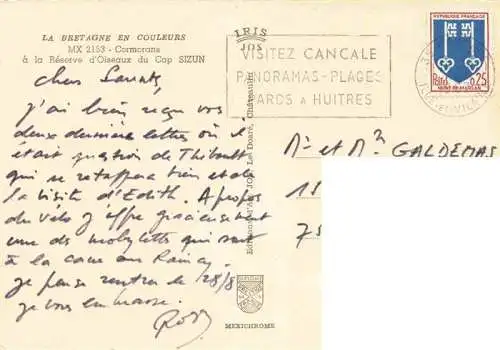 LA BRETAGNE EN COULEURS
MX 2153 - Cormorans
à la Réserve d'Oiseaux du Cap SIZUN
Chers
j'ai bien reçu vos
deux dernière lettre où il
était question de Thibault
qui se retapp bien et de
la visite d'Edith. A propos
du vélo j'offre gracieusement
une des mobylettes qui sont
à la cave au Raincy
je pense rentrer le 28/8
je vous embrasse.
IRIS
JOS
VISITEZ CANCALE
PANORAMAS - PLAGES
PARCS A HUITRES
REPUBLIQUE FRANÇAISE
Postes 0,25
MONT-DE-MARSAN
ILLE-ET-VILAINE
Editions d'Art JOS Le Doaré, Châteaulin
Mr et Mme GALDEMAS
15
75
MEXICHROME